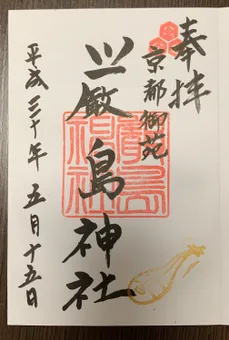 奉拝
京都御苑
厳島神社
平成三十年 五月十五日
嚴島
神社